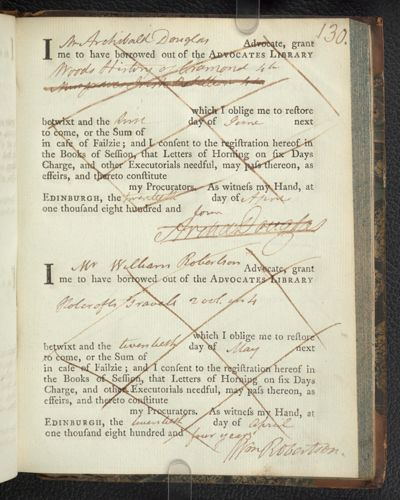 130.
I Mr Archibald Douglas Advocate, grant
me to have borrowed out of the ADVOCATES LIBRARY
Woods History of Cramond 4to
which I oblige me to restore
betwixt and the day of June next
to come, or the Sum of
in case of Failzie; and I consent to the registration hereof in
the Books of Session, that Letters of Horning on six Days
Charge, and other Executorials needful, may pass thereon, as
effeirs, and thereto constitute
my Procurators. As witness my Hand, at
EDINBURGH, the twentieth day of April
one thousand eight hundred and four
Archd Douglas
I Mr William Robertson Advocate, grant
me to have borrowed out of the ADVOCATES LIBRARY
Travels 2 vols in 4
which I oblige me to restore
betwixt and the twentieth day of May next
to come, or the Sum of
in case of Failzie; and I consent to the registration hereof in
the Books of Session, that Letters of Horning on six Days
Charge, and other Executorials needful, may pass thereon, as
effeirs, and thereto constitute
my Procurators. As witness my Hand, at
EDINBURGH, the twentieth day of April
one thousand eight hundred and four years
Wm Robertson.